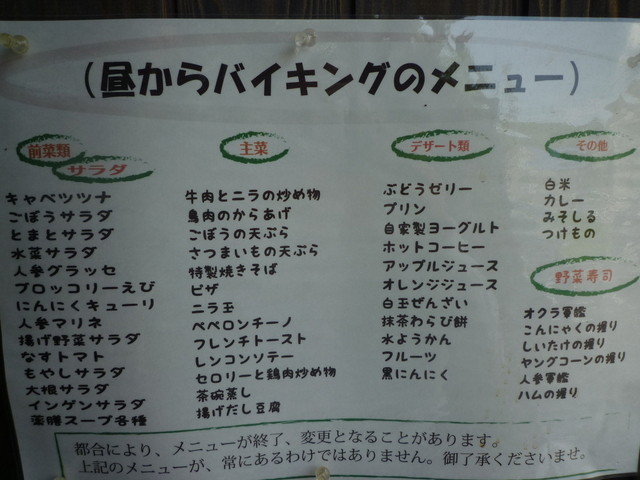 (昼からバイキングのメニュー)
前菜類
サラダ
キャベツツナ
ごぼうサラダ
とまとサラダ
水菜サラダ
人参グラッセ
ブロッコリーえび
にんにくキューリ
人参マリネ
揚げ野菜サラダ
なすトマト
もやしサラダ
大根サラダ
インゲンサラダ
薬膳スープ各種
主菜
牛肉とニラの炒め物
鳥肉のからあげ
ごぼうの天ぷら
さつまいもの天ぷら
特製焼きそば
ピザ
ニラ玉
ペペロンチーノ
フレンチトースト
レンコンソテー
セロリーと鶏肉炒め物
茶碗蒸し
揚げだし豆腐
デザート類
ぶどうゼリー
プリン
自家製ヨーグルト
ホットコーヒー
アップルジュース
オレンジジュース
白玉ぜんざい
抹茶わらび餅
水ようかん
フルーツ
黒にんにく
その他
白米
カレー
みそしる
つけもの
野菜寿司
オクラ軍艦
こんにゃくの握り
しいたけの握り
ヤングコーンの握り
人参軍艦
ハムの握り
都合により、メニューが終了、変更となることがあります。
上記のメニューが、常にあるわけではありません。御了承くださいませ。